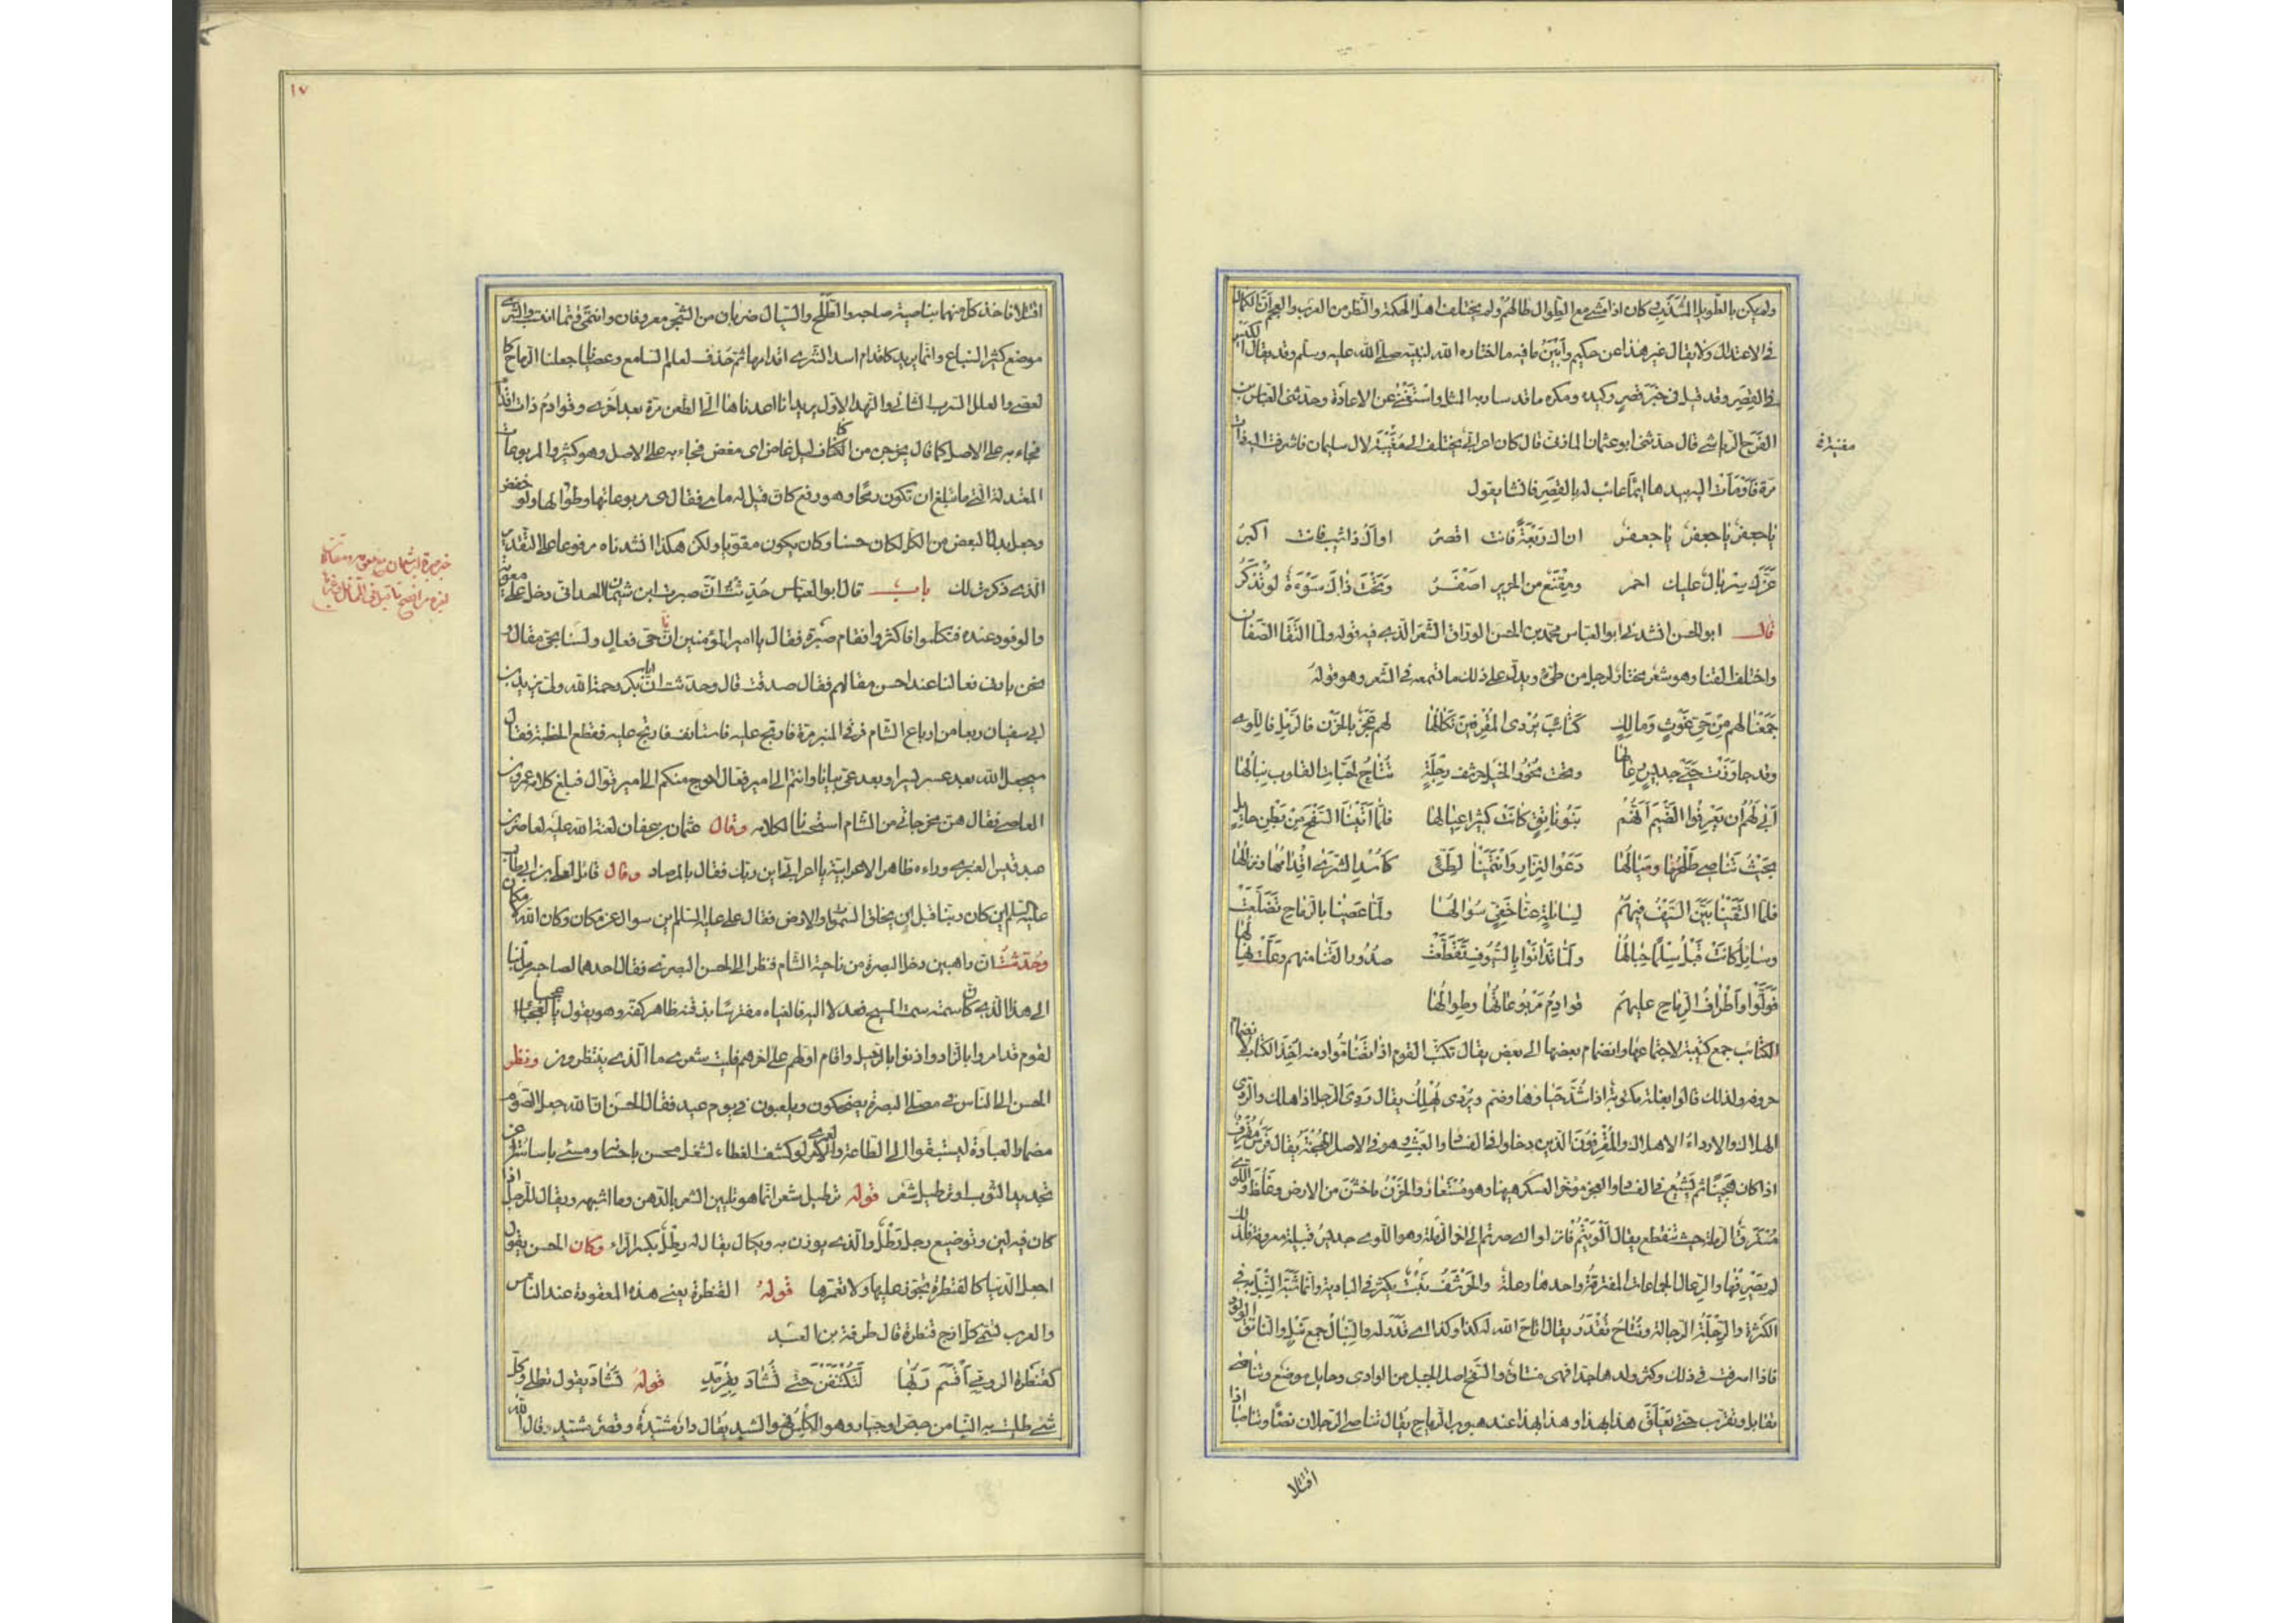 ولم يكن بالطويل المشذب كان اذا مشى مع الطوال طالهم ولم يختلف اهل الحكمة والنظر من العرب والعجم ان الكمال
في الاعتدال ولا يقال غير هذا عن حكيم وأبين ما فيه ما اختاره الله لنبيه صلى الله عليه وسلم وقد يقال الكيس
في القصر وقد قيل في خبر قصير وكيده ومكره ما قد سار به المثل واستغنى عن الاعادة وحدثني العباس بن
الفرج الرياشي قال حدثني ابو عثمان المازني قال كان اعرابي يختلف الى مغنية لال سليمان فاشرفت اليه ذات
مغنية
مرة فأومأت اليه بيدها ايماء عائب له بالقصر فانشا يقول
يا جعفر يا جعفر يا جعفر ان اك ربعة فانت اقصر او اك ذا شيب فانت اكبر
غرك سربال عليك احمر ومقنع من الحرير اصفر وتحت ذاك سوءة لو تذكر
قال ابو الحسن انشدني ابو العباس محمد بن الحسن الوراق الشعر الذي فيه قوله ولما التقا الصفان
واختلف القنا وهو شعر مختار لرجل من طيء ويدل على ذلك ما نسمعه في الشعر وهو قوله
جمعنا لهم من حي غوث ومالك كتائب يردى المقرفين نكالها لهم عجز بالحزن فالرمل فاللوى
وقد جاوزت حيي جديس رعالها وتحت نحور الخيل حرشف رجلة تتاح لحبات القلوب نبالها
أبى لهم ان يعرفوا الضيم أنهم بنو ناتق كانت كثيرا عيالها فلما أتينا السفح من بطن حايل
بحيث تناصى طلحها وسيالها دعوا لنزار وانتمينا لطيئ كأسد الشرى اقدامها ونزالها
فلما التقينا بين السيف فيهم لسائلة عنا خفي سوالها ولما عصينا بالرماح تضلعت
وسايل كانت قبل سلما حبالها ولما تدانوا بالسيوف تقطعت صدور القنا منهم وعلت نهالها
فولوا واطراف الرماح عليهم قوادم مربوعاتها وطوالها
الكتائب جمع كتيبة لاجتماعها وانضمام بعضها الى بعض يقال تكتب القوم اذا تضاموا ومنه اخذ الكتاب لانضمام
حروفه ولذلك قالوا بغلة مكتوبة اذا شد حياوها وضم ويردى يهلك يقال ردى الرجل اذا هلك والردى
الهلاك والارداء الاهلاك والمقرفون الذين دخلوا في الفساد والعيب وهو في الاصل الهجنة يقال فرس مقرف
اذا كان هجينا ثم يشيع في الفساد والعجز موخر العسكر ههنا وهو مستعار والحزن ما خشن من الارض وغلظ واللوى
مسترق الرملة حيث تنقطع يقال الويتم فانزلوا اى صرتم الى اخر الرملة وهو اللوى جديس قبيلة معروفة فلذلك
لم يصرفها والرعال الجماعات المفترقة واحدها رعلة والحرشف نبت يكثر في البادية وانما شبه النبل به في
الكثرة والرجلة الرجالة وتتاح تقدر يقال اتاح الله له كذا وكذا اى قدر له والنبال جمع نبل والناتق الولود
فاذا اسرفت في ذلك وكثر ولدها جدا فهى منتاق والسفح اصل الجبل من الوادى وحايل موضع وتناصى
تقابل وتقرب حتى تعلق هذا بهذا وهذا بهذا عند هبوب الرياح يقال تناصى الرجلان نصا وتناصيا اذا
اقتتلا
١٧
اقتتلا فاخذ كل منهما بناصية صاحبه والطلح والسيال ضربان من الشجر معروفان وانتمى فتما انتسب والشرى
موضع كثير السباع وانما يريد كاقدام اسد الشرى اقدامها ثم حذف لعلم السامع وعصينا جعلنا الرماح كا
لعصى والعلل الشرب الثاني والنهل الاول يريد انا اعدناها الى الطعن مرة بعد اخرى وقوادم ذات اقدام
فجاء به على الاصل كما قال يخرجن من اكناف ليل غاض اى مغض فجاء به على الاصل وهو كثير والمربوعات
المعتدلة التي ما تبلغ ان تكون رمحا وهو رفع كان قيل له ما هي فقال هي مربوعاتها وطوالها ولو خفض
وجعل بدل البعض من الكل لكان حسنا وكان يكون مقويا ولكن هكذا انشدناه مرفوعا على التقدير
الذى ذكرت لك باب قال ابو العباس حدثت ان صبرة ابن شيمان الحداني دخل على معوية
والوفود عنده فتكلموا فاكثروا فقام صبرة فقال يا امير المؤمنين انا حي فعال ولسنا بحي مقال و
نحن بادنى فعالنا عند احسن مقالهم فقال صدقت قال وحدثت ان ابا بكر رحمة الله ولى يزيد بن
ابي سفيان ربعا من ارباع الشام فرقى المنبر مرة فارتج عليه فاستانف فارتج عليه فقطع الخطبة فقال
سيجعل الله بعد عسر يسرا وبعد عي بيانا وانتم الى امير فعال احوج منكم الى امير قوال فبلغ كلامه عمرو بن
العاص فقال هن مخرجاتي من الشام استحسانا لكلامه وقال عثمان بن عفان لعنة الله عليه لعامر بن
عبد قيس العنبري وراءه ظاهر الاعرابية يا اعرابي اين ربك فقال بالمرصاد وقال قائل لعلي بن ابي طالب
عليه السلم اين كان ربنا قبل ان يخلق السموات والارض فقال على عليه السلم اين سوال عن مكان وكان الله لا مكان
وحدثت ان راهبين دخلا البصرة من ناحية الشام فنظرا الى الحسن البصري فقال احدهما لصاحبه مل بنا
الى هذا الذي كان سمته سمت المسيح فعدلا اليه فالفياه مفترشا بذقنه ظاهر كفه وهو يقول يا عجبا
لقوم قد امروا بالزاد واذنوا بالرحيل واقام اولهم على اخرهم فليت شعرى ما الذى ينتظرون ونظر
الحسن الى الناس في مصلى البصرة يضحكون ويلعبون في يوم عيد فقال الحسن ان الله جعل الصوم
مضمارا لعباده ليستبقوا الى الطاعة ولعمرى لو كشف الغطاء لشغل محسن باحسانه ومسئ باساءته عن
تجديد الثوب او ترطيل شعر قوله ترطيل شعر انما هو تليين الشعر بالدهن وما اشبهه ويقال للرجل اذا
كان فيه لين وتوضيع رجل رطل والذى يوزن به ويكال يقال له رطل بكسر الراء وكان الحسن يقول
اجعل الدنيا كالقنطرة تجوز عليها ولا تعمرها قوله القنطرة يعني هذه المعقودة عند الناس
والعرب تسمى كل ازج قنطرة قال طرفة بن العبد
كقنطرة الرومي أقسم ربها لتكتنفن حتى تشاد بقرمد قوله تشاد يقول تطلى وكل
شئ طليت به البناء من جص او جيار وهو الكلس فهو الشيد يقال دار مشيدة وقصر مشيد وقال الله